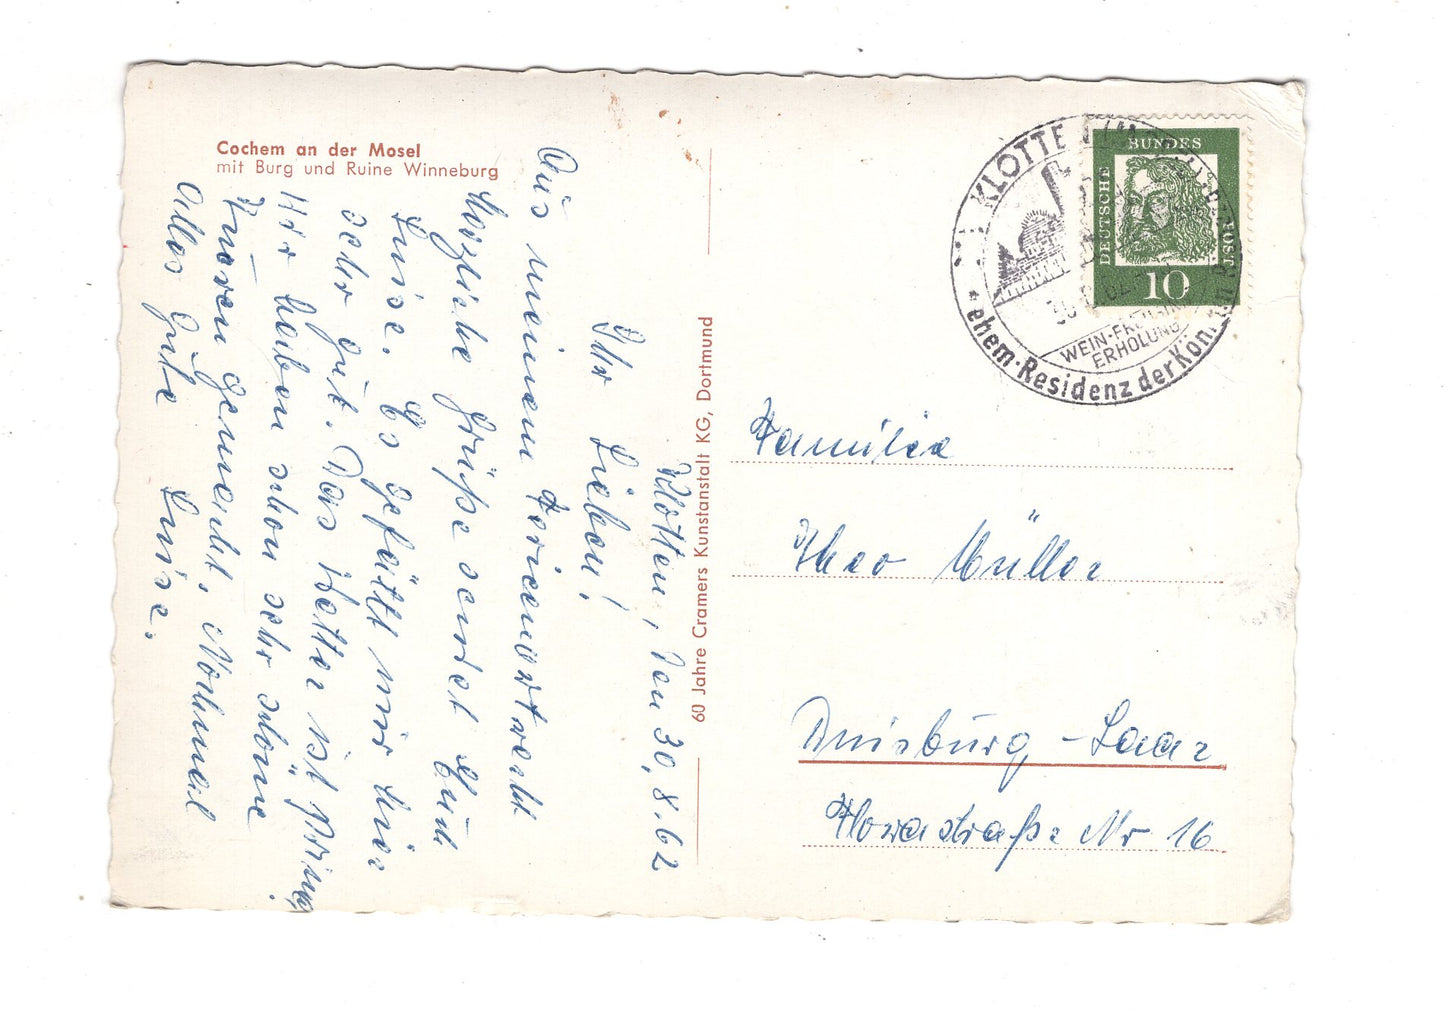 Cochem an der Mosel
mit Burg und Ruine Winneburg
Klotten, den 30.8.62
Ihr Lieben!
Aus meinem Ferienort recht
Herzliche Grüße sendet Euch
Luise. Es gefällt mir hier
sehr gut. Das Wetter ist prima.
Wir haben schon sehr schöne
Turen gemacht. Nochmal
Alles gute Luise.
60 Jahre Cramers Kunstanstalt KG, Dortmund
KLOTTE
WEIN-
ERHOLUNG
ehem. Residenz der
DEUTSCHE
BUNDES
POST
10
Familie
Theo Müller
Duisburg-Laar
straße Nr 16